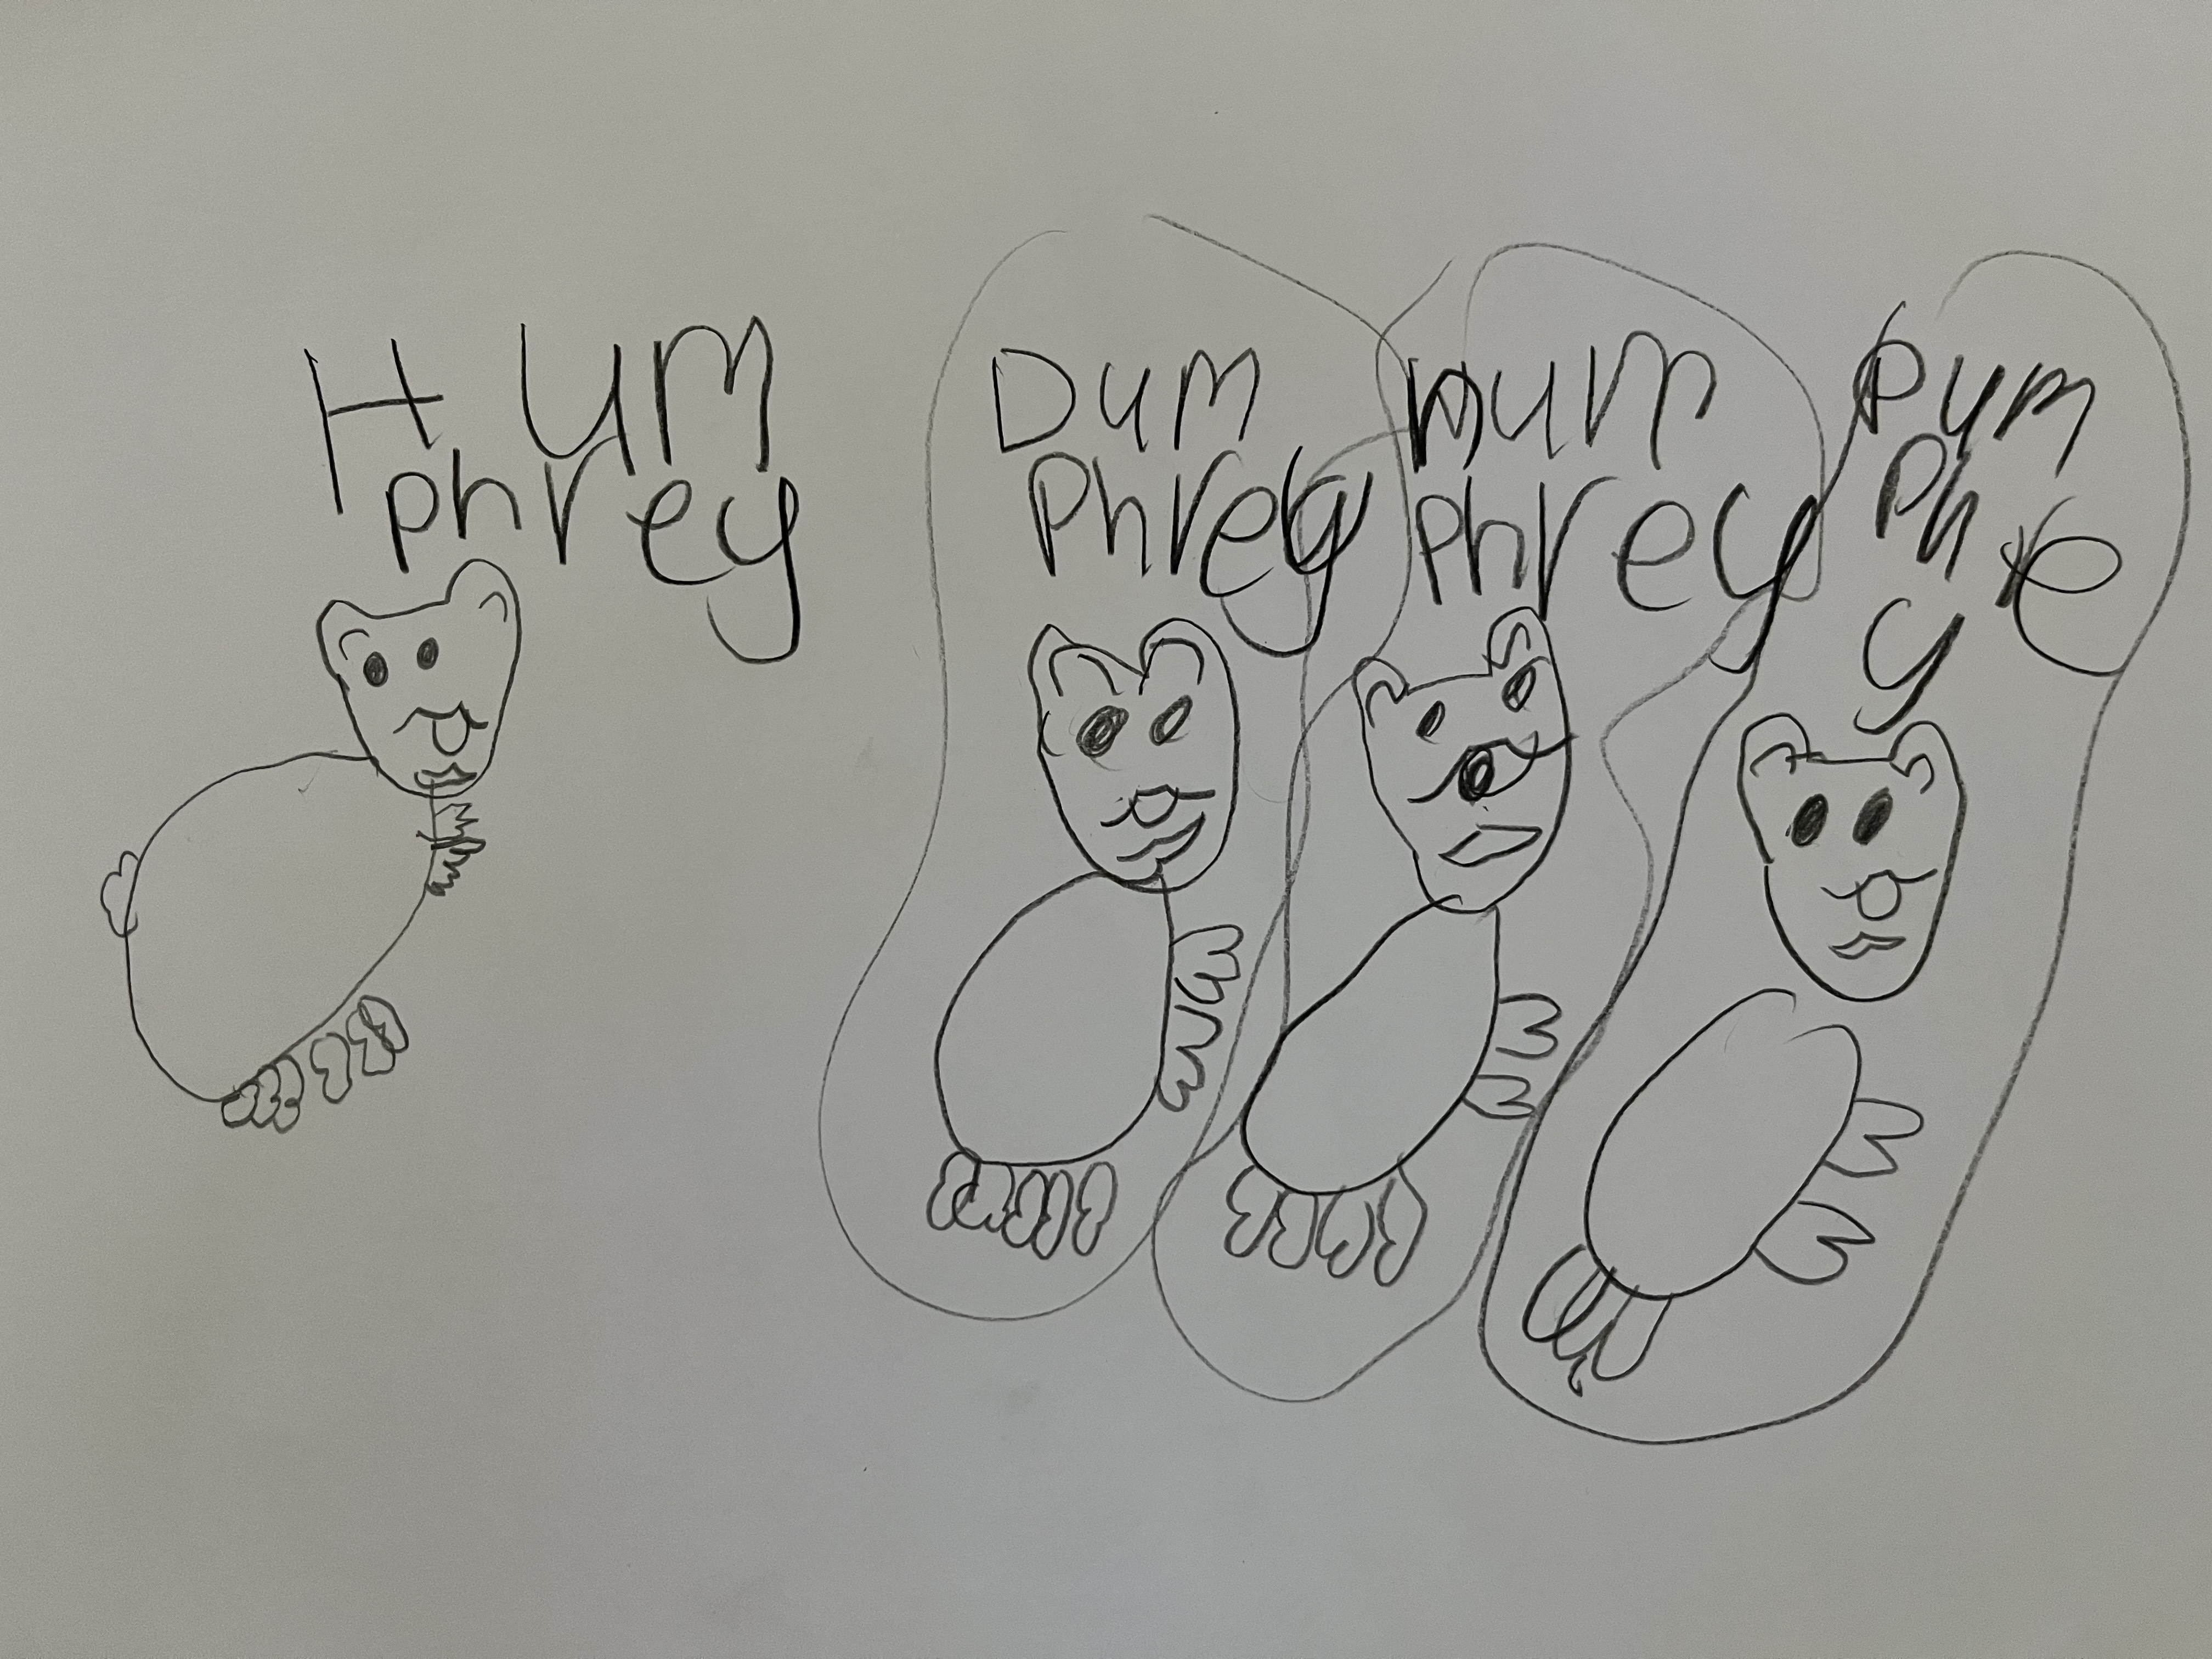 Tum
phrey
Dum
phrey
bum
phrey
Pum
phre
y